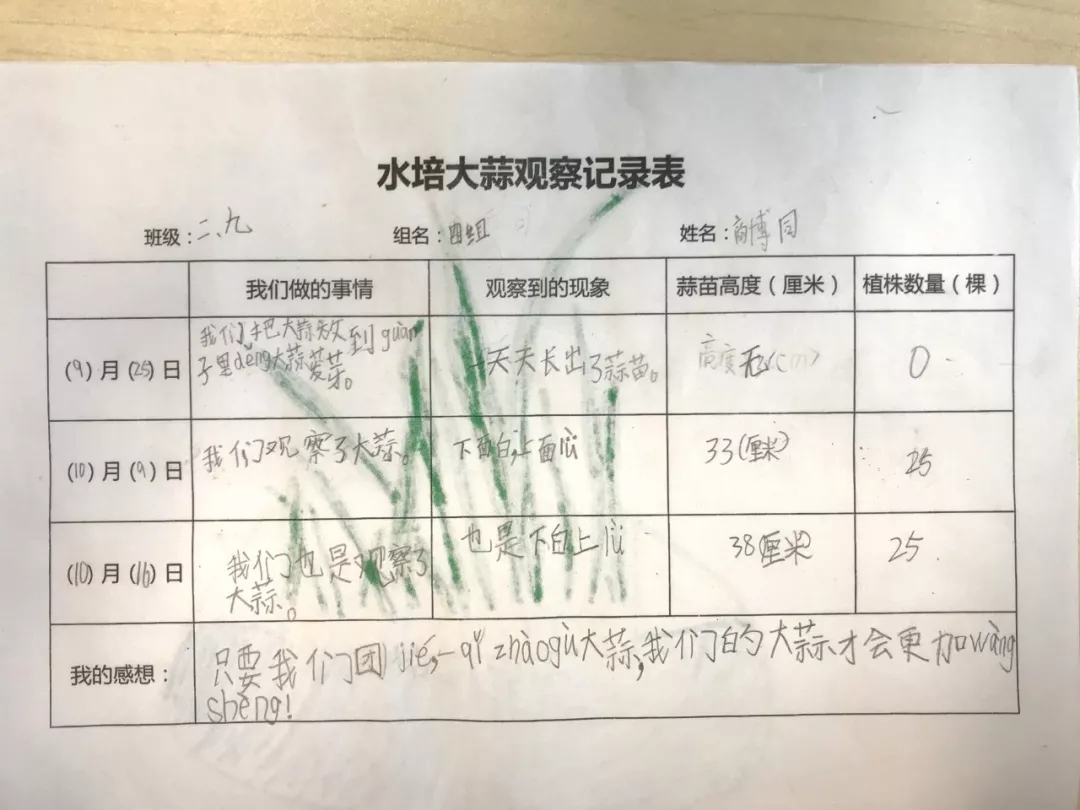 水培大蒜观察记录表
班级：二、九 组名：四组 姓名：商博同
我们做的事情 观察到的现象 蒜苗高度（厘米） 植株数量（棵）
我们把大蒜放到guàn
子里děng大蒜发芽。
(9)月(25)日 一天天长出了蒜苗。 高度无(cm) 0
(10)月(9)日 我们观察了大蒜。 下面白，上面lǜ 33(厘米) 25
(10)月(16)日 我们也是观察了 也是下白上lǜ 38厘米 25
大蒜。
我的感想： 只要我们团jié，一qǐ zhàogù大蒜，我们的大蒜才会更加wàng
shèng！